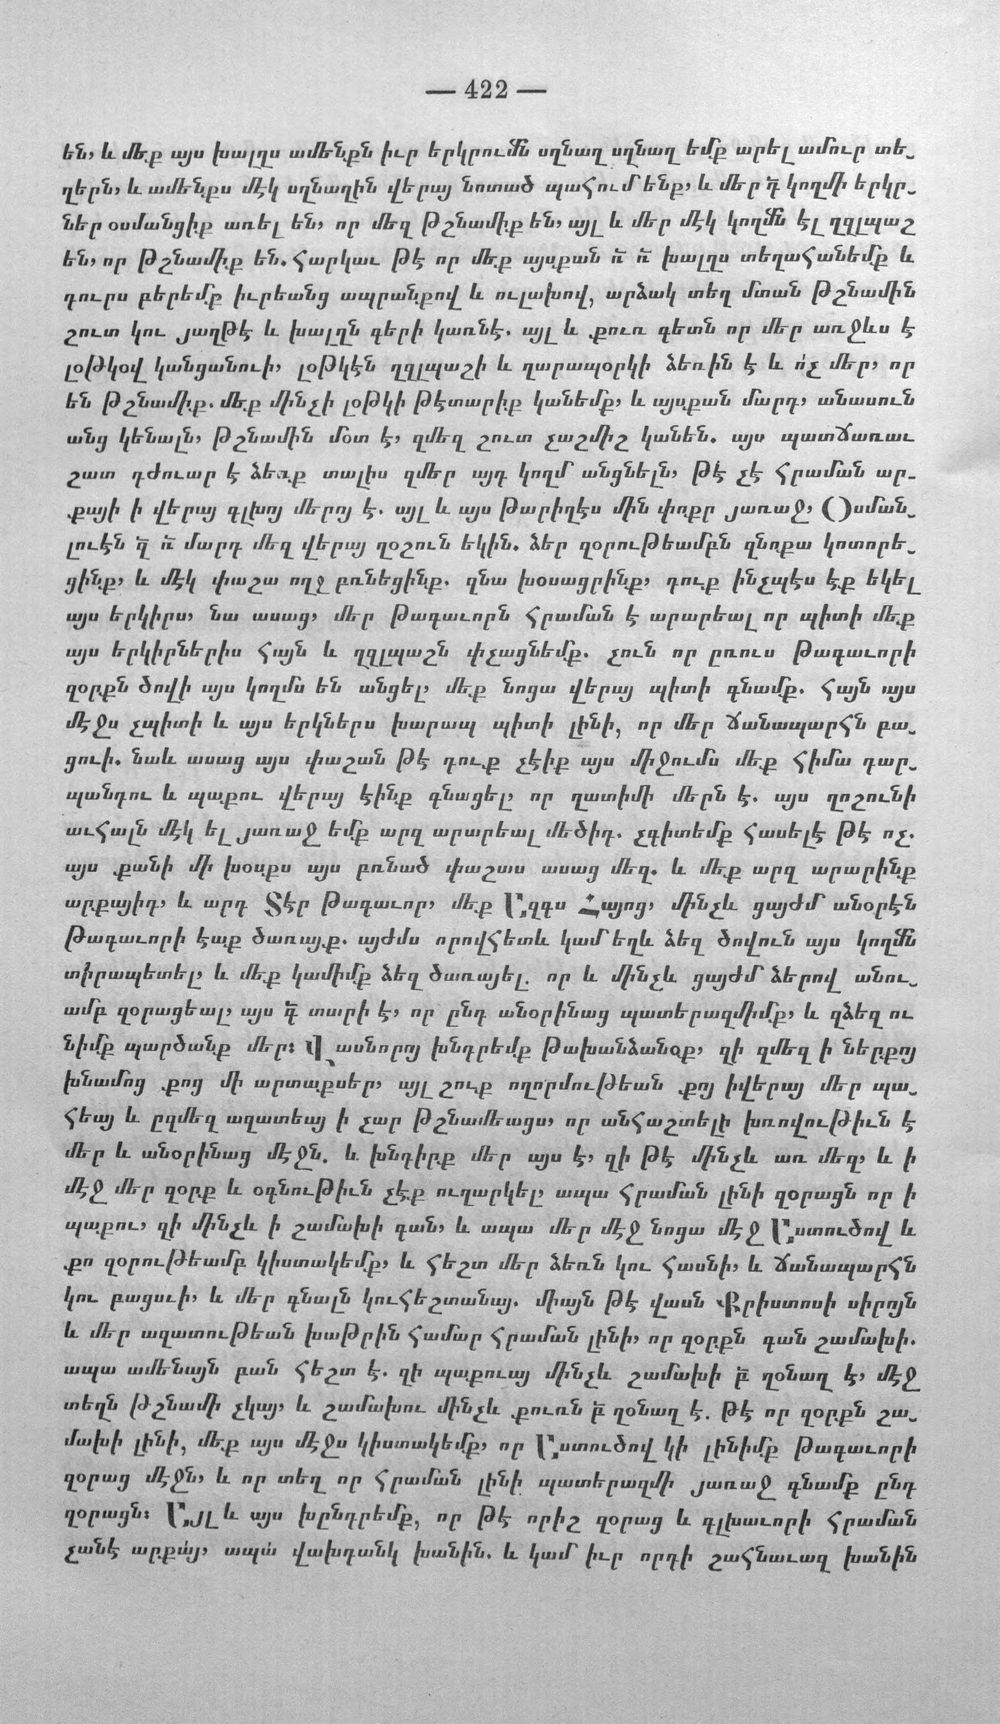 — 422 —
են, և մեք այս խալղս ամենքն իւր երկրումն սղնաղ սղնաղ եմք արել ամուր տե֊
ղերն, և ամենքս մէկ սղնաղին վերայ նոտած պահում ենք, և մեր դ̃ կողմի երկր֊
ներ օսմանցիք առել են, որ մեզ թշնամիք են, այլ և մեր մէկ կողմն էլ ղզլպաշ
են, որ թշնամիք են. հարկաւ թէ որ մեք այսքան ռ̃ ռ̃ խալղս տեղահանեմք և
դուրս բերեմք իւրեանց ապրանքով և ուլախով, արձակ տեղ մտան թշնամին
շուտ կու յաղթէ և խալղն գերի կառնէ. այլ և քուռ գետն որ մեր առջևս է
լօթկօվ կանցանուի, լօթկէն ղզլպաշի և ղարապօրկի ձեռին է և ո՛չ մեր, որ
են թշնամիք. մեք մինչի լօթկի թէտարիք կանեմք, և այսքան մարդ, անասուն
անց կենալն, թշնամին մօտ է, զմեզ շուտ չաշմիշ կանեն. այս պատճառաւ
շատ դժուար է ձեռք տալիս զմեր այդ կողմ անցնելն, թէ չէ հրաման ար֊
քայի ի վերայ գլխոյ մերոյ է. այլ և այս թարիղէս մին փոքր յառաջ, Օսման֊
լուէն ղ̃ ռ̃ մարդ մեզ վերայ ղօշուն եկին. ձեր զօրութեամբն զնոքա կոտորե֊
ցինք, և մէկ փաշա ողջ բռնեցինք. զնա խօսացրինք, դուք ինչպէս էք եկել
այս երկիրս, նա ասաց, մեր թագաւորն հրաման է արարեալ որ պիտի մեք
այս երկիրներիս հայն և ղզլպաշն փչացնեմք. չուն որ ըռուս թագաւորի
զօրքն ծովի այս կողմս են անցել, մեք նոցա վերայ պիտի գնամք. հայն այս
մէջս չպիտի և այս երկներս խարապ պիտի լինի, որ մեր ճանապարհն բա֊
ցուի. նաև ասաց այս փաշան թէ դուք չէիք այս միջումս մեք հիմա դար֊
պանդու և պաքու վերայ էինք գնացել, որ ղատիմի մերն է. այս ղոշունի
աւհալն մէկ ել յառաջ եմք արզ արարեալ մեծիդ. չգիտեմք հասելէ թէ ոչ.
այս քանի մի խօսքս այս բռնած փաշաս ասաց մեզ. և մեք արզ արարինք
արքայիդ, և արդ Տէր թագաւոր, մեք Ազգս Հայոց, մինչև ցայժմ անօրէն
թագաւորի էաք ծառայք. այժմս որովհետև կամ եղև ձեզ ծովուն այս կողմն
տիրապետել, և մեք կամիմք ձեզ ծառայել. որ և մինչև ցայժմ ձերով անու֊
ամբ զօրացեալ, այս գ̃ տարի է, որ ընդ անօրինաց պատերազմիմք, և զձեզ ու
նիմք պարծանք մեր։ Վասնորոյ խնդրեմք թախանձանօք, զի զմեզ ի ներքոյ
խնամոց քոց մի արտաքսեր, այլ շուք ողորմութեան քոյ իվերայ մեր պա֊
հեայ և ըզմեզ ազատեայ ի չար թշնամեացս, որ անհաշտելի խռովութիւն է
մեր և անօրինաց մէջն. և խնդիրք մեր այս է, զի թէ մինչև առ մեզ, և ի
մէջ մեր զօրք և օգնութիւն չէք ուղարկել, ապա հրաման լինի զօրացն որ ի
պաքու, զի մինչև ի շամախի գան, և ապա մեր մէջ նոցա մէջ Աստուծով և
քո զօրութեամբ կիստակեմք, և հեշտ մեր ձեռն կու հասնի, և ճանապարհն
կու բացուի, և մեր գնալն կուհեշտանայ. միայն թէ վասն Քրիստոսի սիրոյն
և մեր ազատութեան խաթրին համար հրաման լինի, որ զօրքն գան շամախի.
ապա ամենայն բան հեշտ է. զի պաքուայ մինչև շամախի բ̃ ղօնաղ է, մէջ
տեղն թշնամի չկայ, և շամախու մինչև քուռն բ̃ ղօնաղ է. թէ որ զօրքն շա֊
մախի լինի, մեք այս մէջս կիստակեմք, որ Աստուծով կի լինիմք թագաւորի
զօրաց մէջն, և որ տեղ որ հրաման լինի պատերազմի յառաջ գնամք ընդ
զօրացն։ Այլ և այս խընդրեմք, որ թէ որիշ զօրաց և գլխաւորի հրաման
չանէ արքայ, ապա վախդանկ խանին. և կամ իւր որդի շահնաւազ խանին